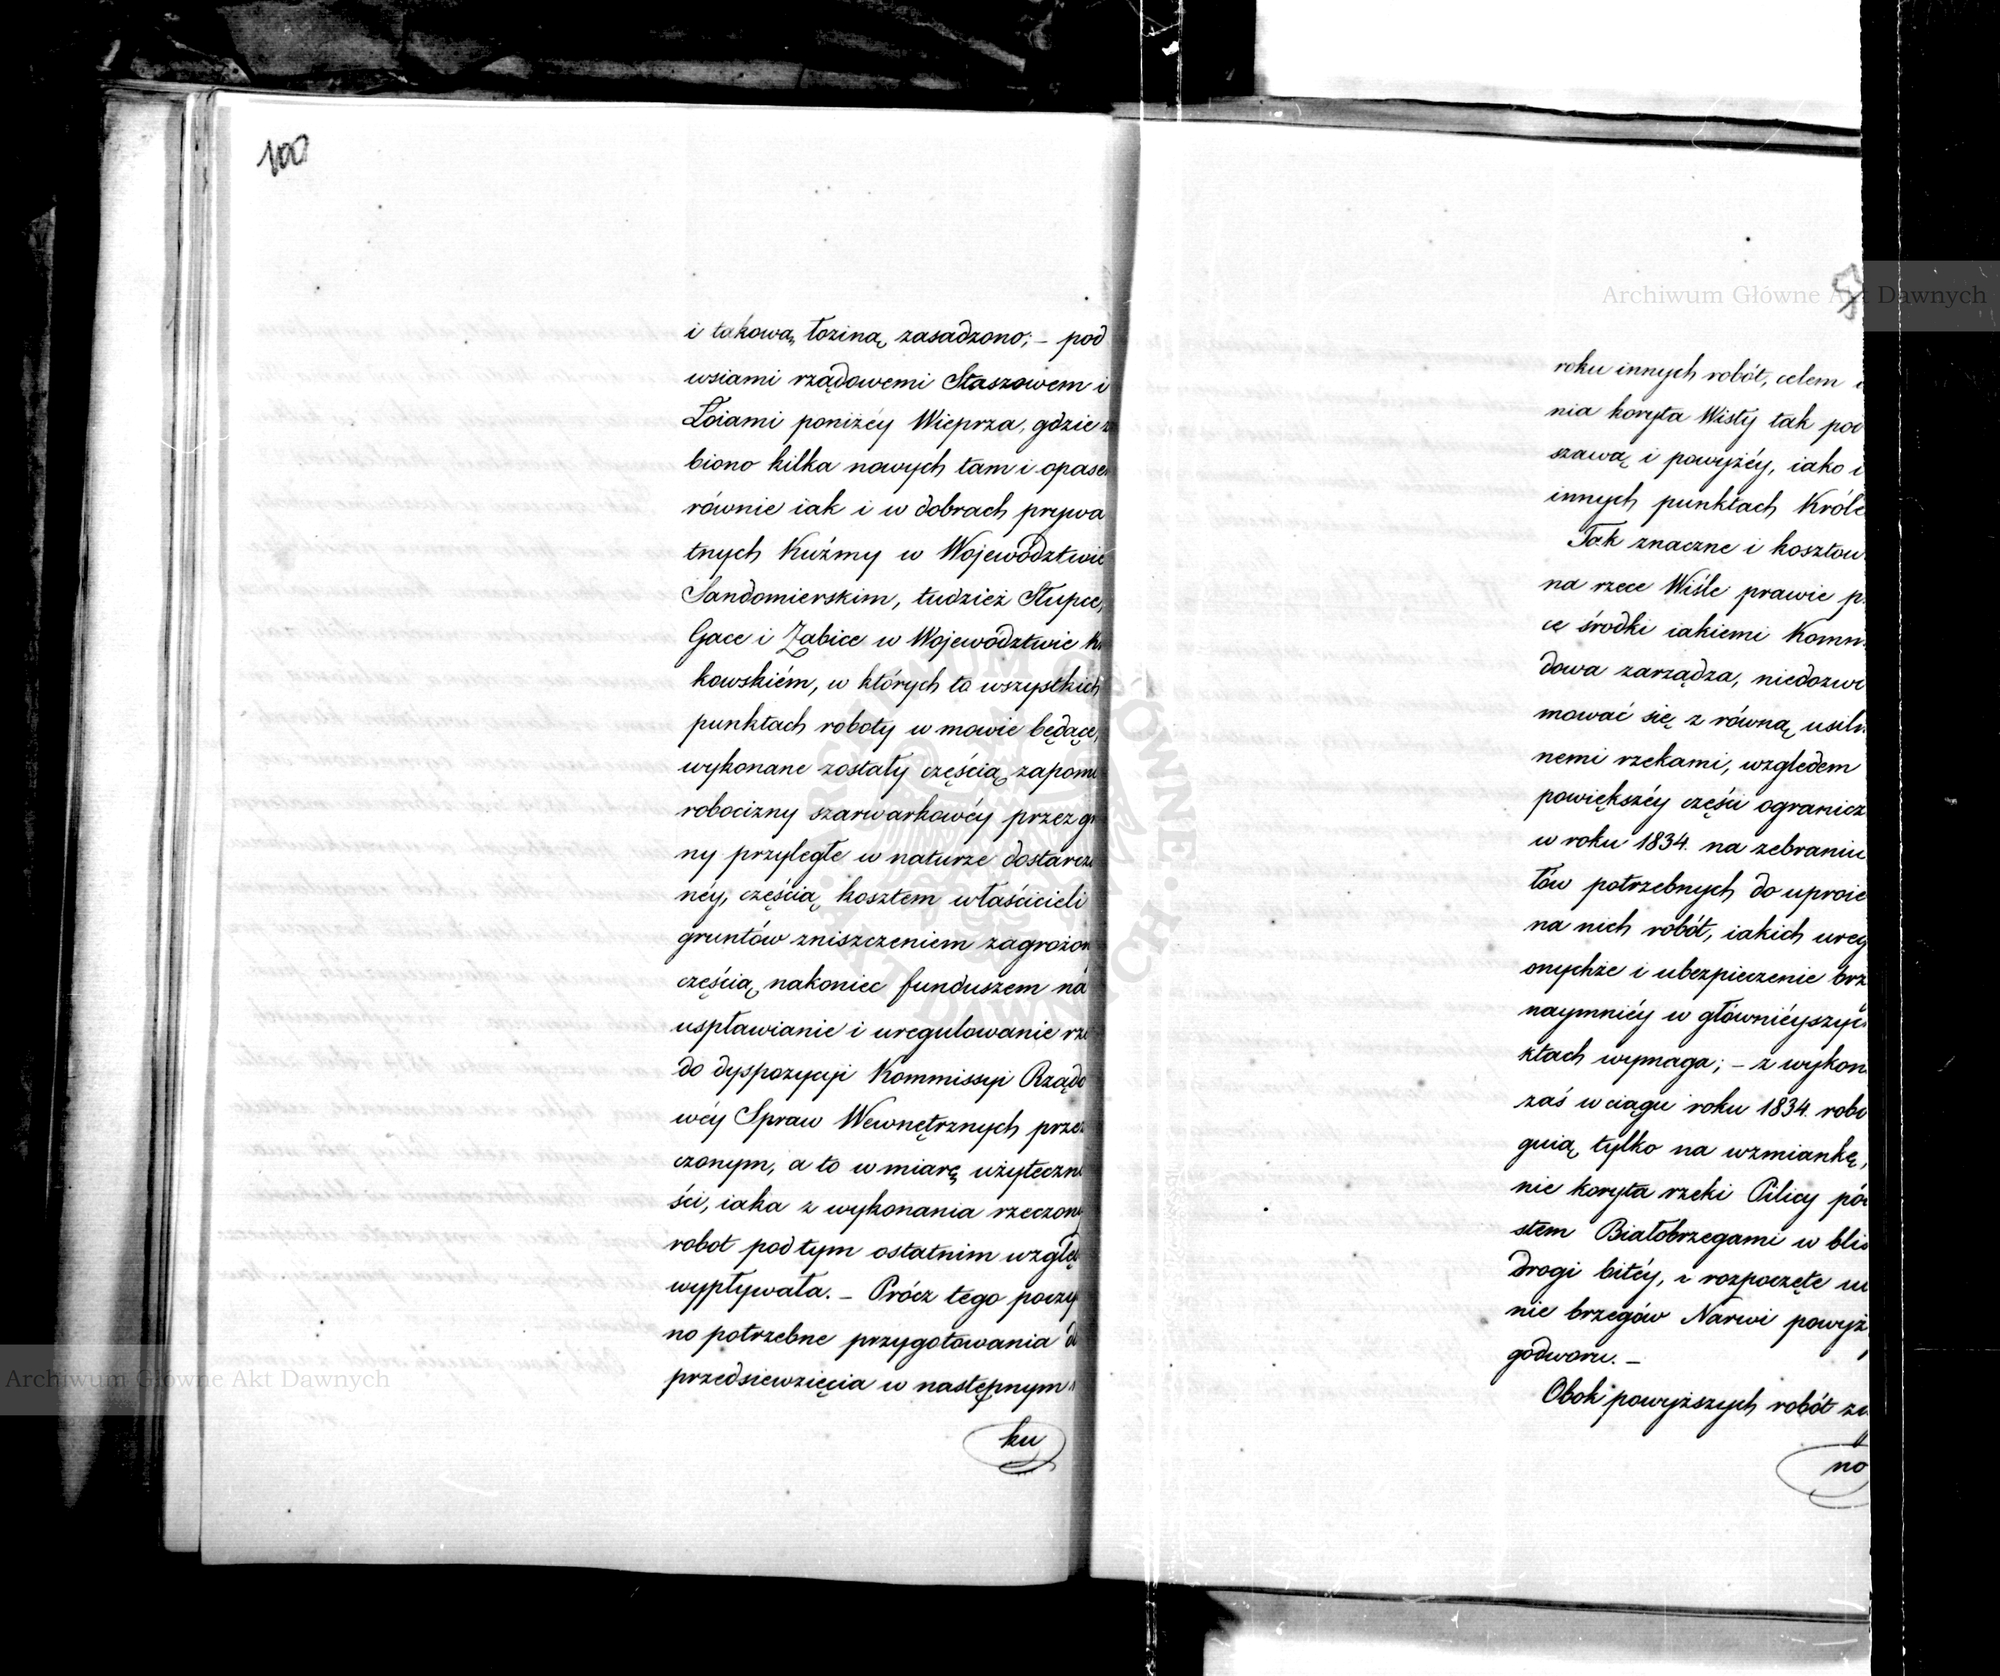 100
i takową łoziną zasadzono; – pod
wsiami rządowemi Staszowem i
Łoiami poniżéy Wieprza, gdzie
biono kilka nowych tam i opase
równie iak i w dobrach prywa
tnych Kuźmy w Województwie
Sandomierskim, tudzież Słupce,
Gace i Zabice w Województwie K
kowskiém, w których to wszystkich
punktach roboty w mowie będące,
wykonane zostały częścią zapomo
robocizny szarwarkowéy przez g
ny przyległe w naturze dostarcz
néy, częścią kosztem właścicieli
gruntów zniszczeniem zagrożon
częścią nakoniec funduszem na
uspławianie i uregulowanie rze
do dyspozycyi Kommissyi Rządo
wéy Spraw Wewnętrznych prze
czonym, a to w miarę użyteczn
ści, iaka z wykonania rzeczon
robot pod tym ostatnim wzglę
wypływała. – Prócz tego poczy
no potrzebne przygotowania d
przedsiewzięcia w następnym
ku
roku innych robót, celem
nia koryta Wisły tak pod
szawą i powyżéy, iako i
innych punktach Króle
Tak znaczne i kosztow
na rzece Wiśle prawie p
ce środki iakiemi Komm
dowa zarządza, niedozwo
mować się z równą usiln
nemi rzekami, względem
powiększéy części ogranicz
w roku 1834. na zebraniu
tów potrzebnych do uproie
na nich robót, iakich ureg
onychże i ubezpieczenie brz
naymniéy w głównieyszych
ktach wymaga; – z wykon
zaś w ciągu roku 1834. robo
guią tylko na wzmiankę,
nie koryta rzeki Pilicy pó
stem Białobrzegami w blis
drogi bitéy, i rozpoczęte u
nie brzegów Narwi powyż
godworu. –
Obok powyższych robót za
no
Archiwum Główne Akt Dawnych
Archiwum Główne Akt Dawnych
ARCHIWUM GŁÓWNE AKT DAWNYCH